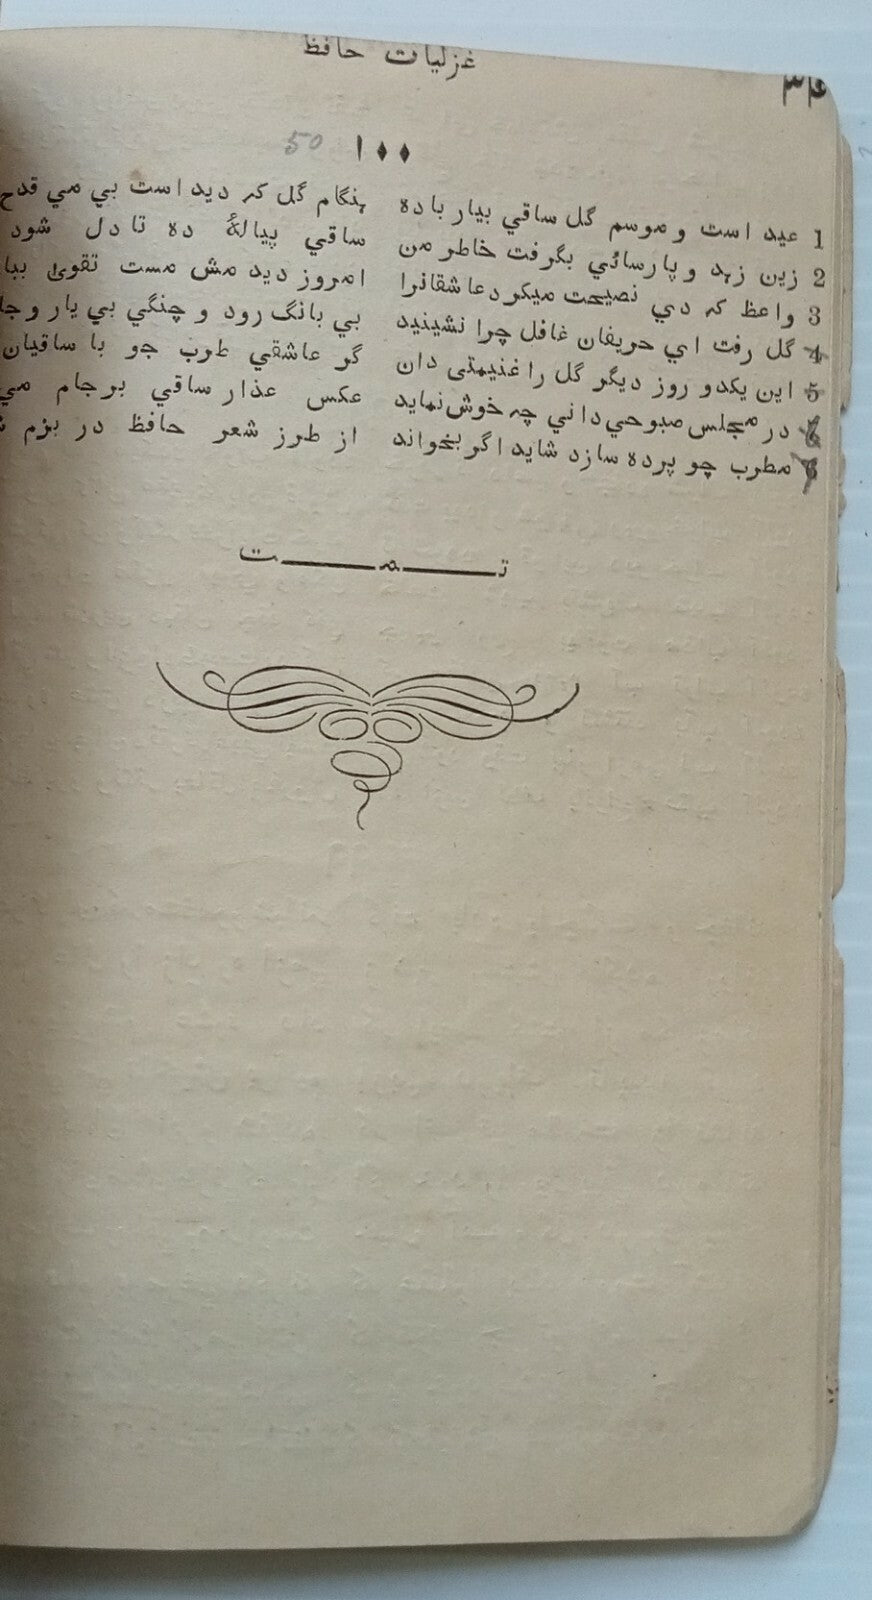 غزلیات حافظ
۳۴
۱۰۰ 50
1 عید است و موسم گل ساقي بیار باده ہنگام گل کہ دید است بي مي قدح
2 زین زہد و پارسائي بگرفت خاطر من ساقي پیالۂ ده تا دل شود
3 واعظ کہ دي نصیحت میکرد عاشقانرا امروز دید مش مست تقوی
4 گل رفت اي حریفان غافل چرا نشینید بي بانگ رود و چنگي بي یار و
5 این یکدو روز دیگر گل را غنیمتی دان گر عاشقي طرب جو با ساقیان
در مجلس صبوحي داني چہ خوش نماید عکس عذار ساقي برجام مي
مطرب چو پرده سازد شاید اگر بخواند از طرز شعر حافظ در بزم
تمت